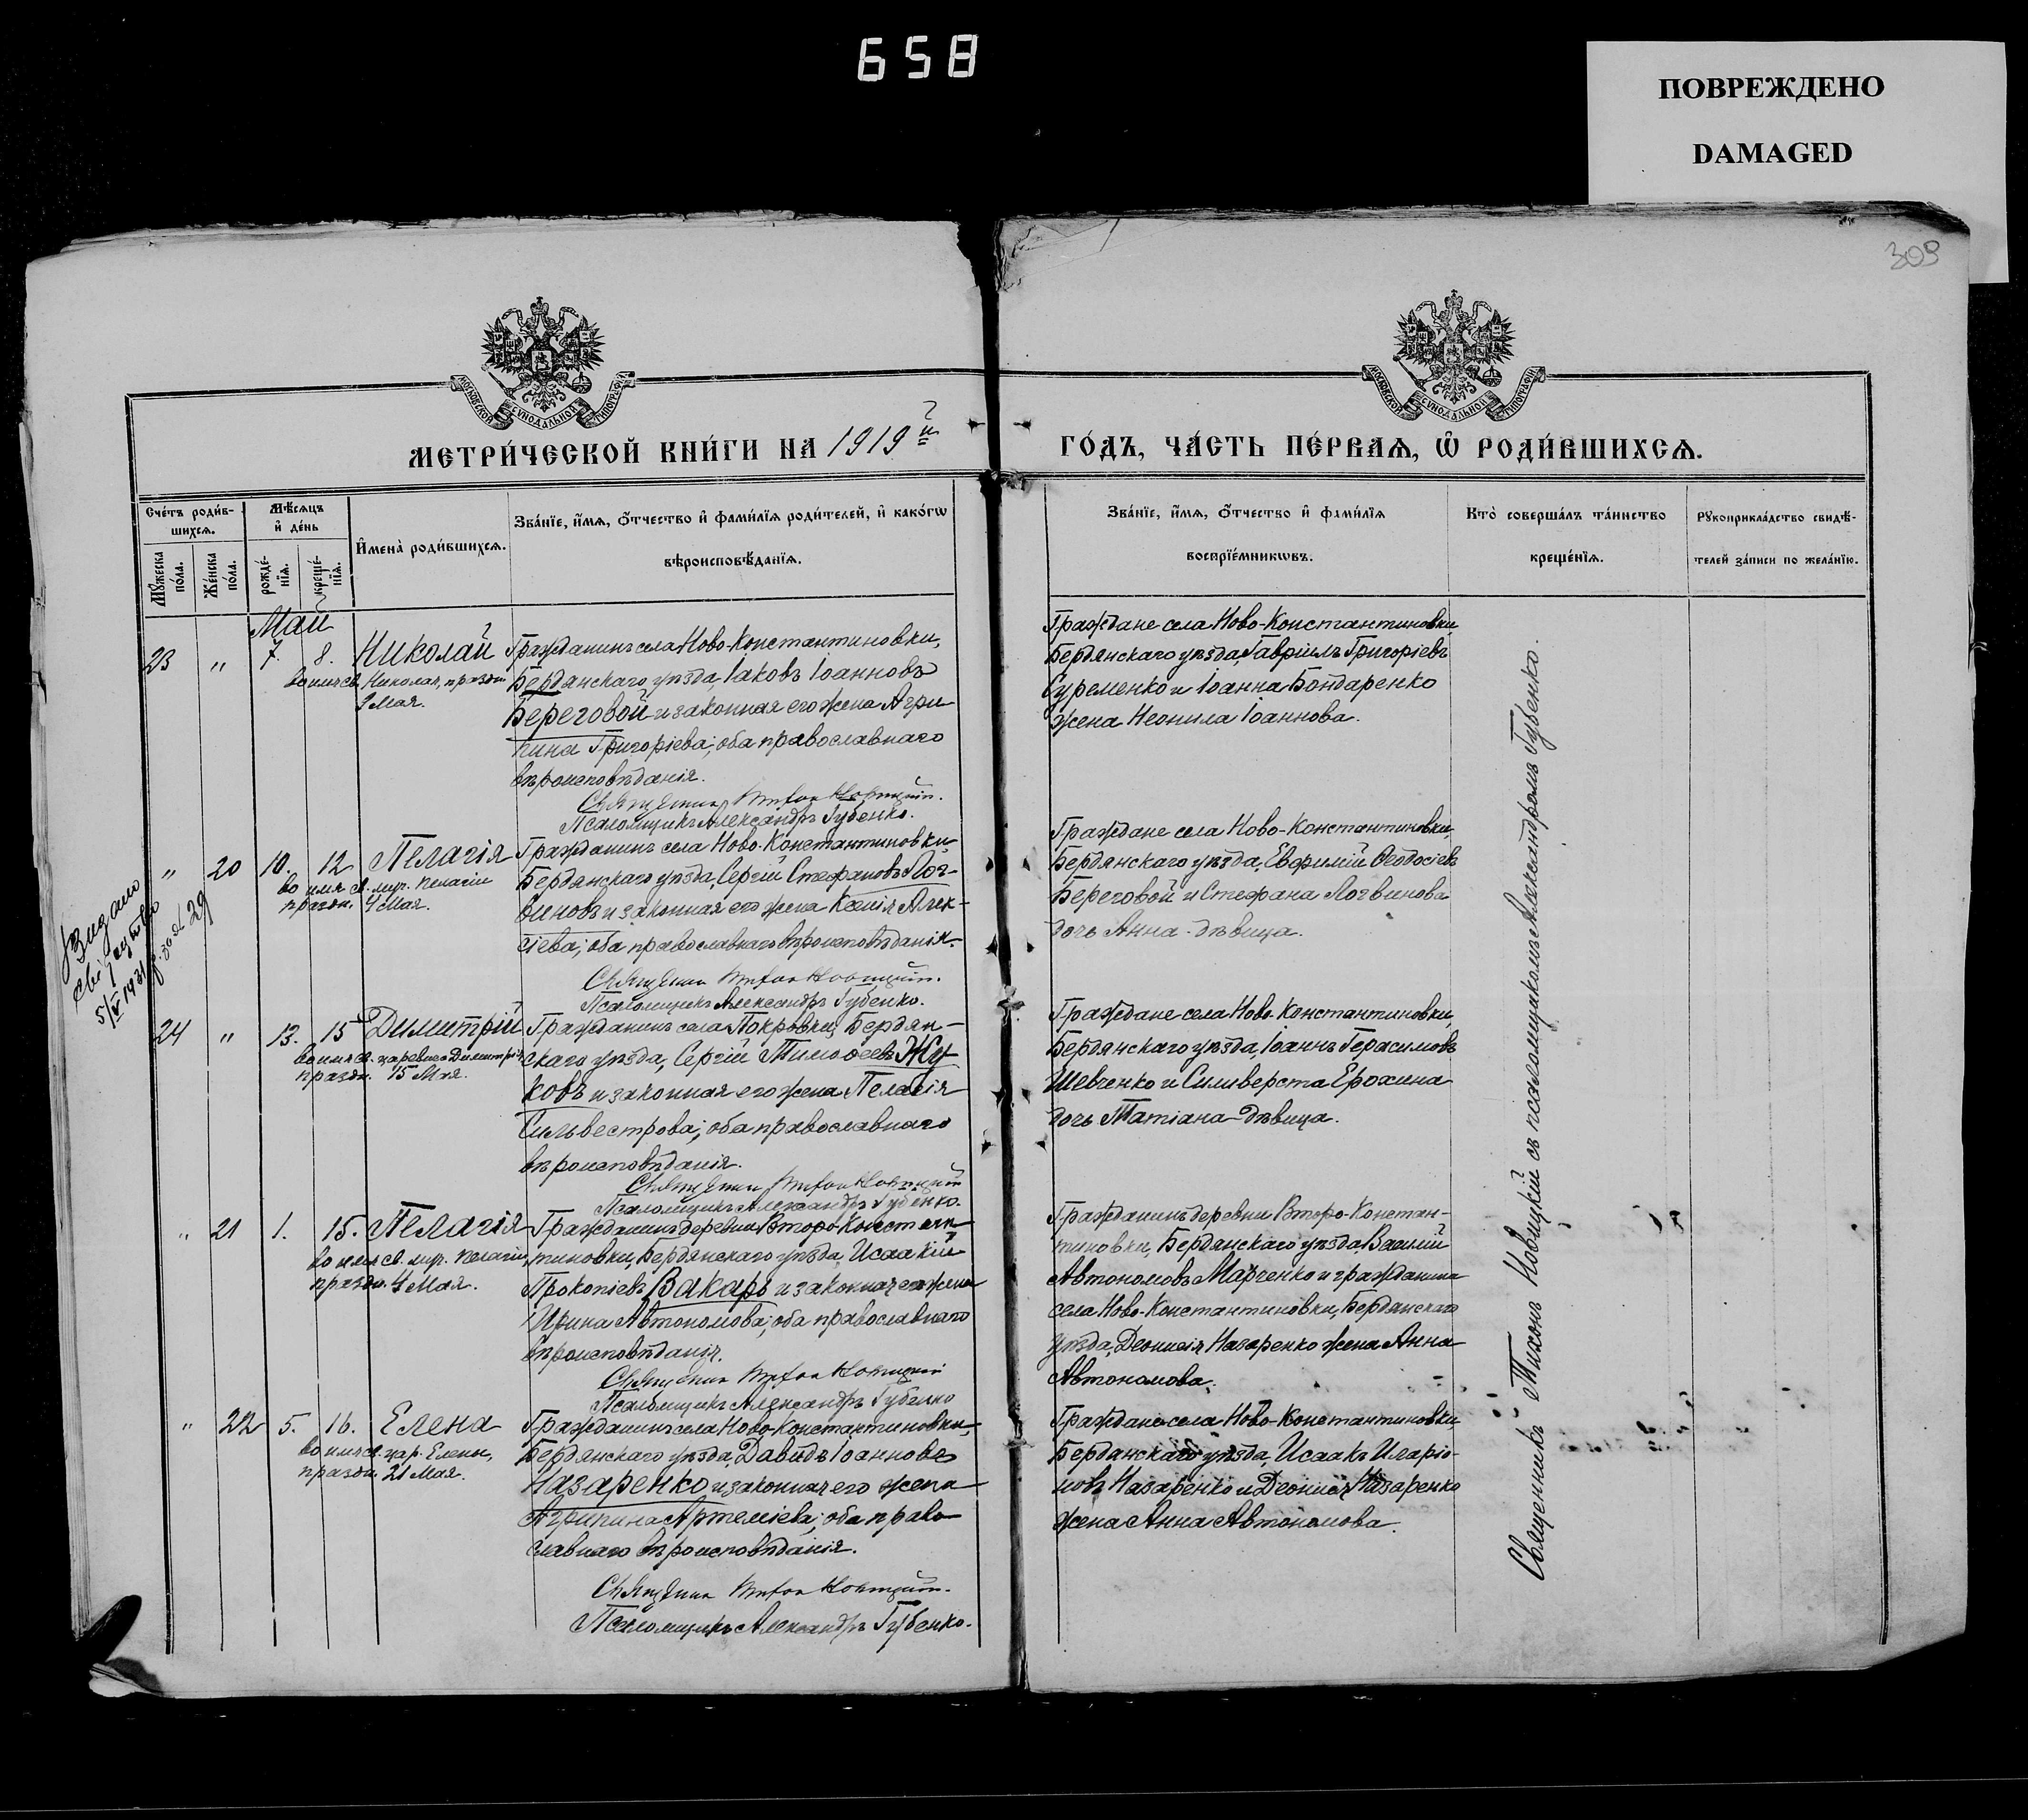 658
ПОВРЕЖДЕНО
DAMAGED
309
МОСКОВСКОЙ СѴНОДАЛЬНОЙ ТИПОГРАФІИ
МОСКОВСКОЙ СѴНОДАЛЬНОЙ ТИПОГРАФІИ
МЕТРИ́ЧЕСКОЙ КНИ́ГИ НА 1919й
ГО́ДЪ, ЧА́СТЬ ПЕ́РВАѦ, Ѡ РОДИ́ВШИХСѦ.
Счетъ родив-
шихсѧ.
Мужеска
пола.
Женска
пола.
Мѣсѧцъ
и день
рожде-
нїѧ.
креще-
нїѧ.
Имена родившихсѧ.
Званїе, имѧ, отчество и фамилїѧ родителей, и какогѡ
вѣроисповѣданїѧ.
Званїе, имѧ, отчество и фамилїѧ
воспрїемникѡвъ.
Кто совершалъ таинство
крещенїѧ.
Рукоприкладство свидѣ-
телей записи по желанїю.
Май
23 " 7. 8. Николай
во имя св. Николая, праздн
9 Мая.
Гражданинъ села Ново-Константиновки,
Бердянскаго уѣзда, Іаковъ Іоанновъ
Береговой и законная его жена Агри-
пина Григоріева; оба православнаго
вѣроисповѣданія.
Священник Тихон Новицкий.
Псаломщикъ Александръ Губенко.
Граждане села Ново-Константиновки,
Бердянскаго уѣзда, Гавріилъ Григоріевъ
Суременко и Іоанна Бондаренко
жена Неонила Іоаннова.
" 20 10. 12 Пелагія
во имя св. муч. Пелагіи
праздн. 4 Мая.
Гражданинъ села Ново-Константиновки,
Бердянскаго уѣзда, Сергій Стефановъ Лог-
виновъ и законная его жена Ксенія Алек-
сіева; оба православнаго вѣроисповѣданія.
Священник Тихон Новицкий.
Псаломщикъ Александръ Губенко.
Граждане села Ново-Константиновки,
Бердянскаго уѣзда, Евфимій Ѳеодосіевъ
Береговой и Стефана Логвинова
дочь Анна - дѣвица.
Видано
5/V 1931 р. за № 29
24 " 13. 15 Димитрій
во имя св. царевича Димитрія
праздн. 15 Мая.
Гражданинъ села Покровки, Бердян-
скаго уѣзда, Сергій Тимоѳеевъ Жу-
ковъ и законная его жена Пелагія
Сильвестрова; оба православнаго
вѣроисповѣданія.
Священник Тихон Новицкий
Псаломщикъ Александръ Губенко.
Граждане села Ново-Константиновки,
Бердянскаго уѣзда, Іоаннъ Герасимовъ
Шевченко и Сильверста Ерохина
дочь Татіана - дѣвица.
" 21 1. 15. Пелагія
во имя св. муч. Пелагіи,
праздн. 4 Мая.
Гражданинъ деревни Второ-Констан-
тиновки, Бердянскаго уѣзда, Исаакій
Прокопіевъ Вакарь и законная его жена
Ирина Автономова; оба православнаго
вѣроисповѣданія.
Священник Тихон Новицкий
Псаломщикъ Александръ Губенко
Гражданинъ деревни Второ-Констан-
тиновки, Бердянскаго уѣзда, Василій
Автономовъ Марченко и гражданина
села Ново-Константиновки, Бердянскаго
уѣзда, Деонисія Назаренко жена Анна
Автономова.
" 22 5. 16. Елена
во имя св. цар. Елены,
праздн. 21 Мая.
Гражданинъ села Ново-Константиновки,
Бердянскаго уѣзда, Давидъ Іоанновъ
Назаренко и законная его жена
Агрипина Артеміева; оба право-
славнаго вѣроисповѣданія.
Священник Тихон Новицкий.
Псаломщикъ Александръ Губенко.
Граждане села Ново-Константиновки,
Бердянскаго уѣзда, Исаакъ Иларіо-
новъ Назаренко и Деонисія Назаренко
жена Анна Автономова.
Священникъ Тихонъ Новицкій съ псаломщикомъ Александромъ Губенко.